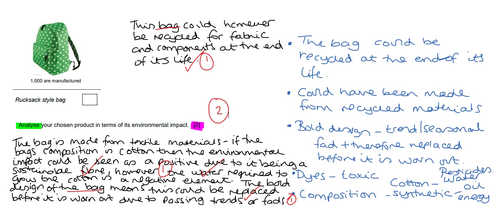 This bag could however
be recycled for fabric
and components at the end
of its life. 1
1,000 are manufactured
Rucksack style bag
2
Analyse your chosen product in terms of its environmental impact. [2]
The bag is made from textile materials - if the
bags composition is cotton then the environmental
impact could be seen as a positive due to it being a
sustainable fibre, however 1 the water required to
grow the cotton is a negative element. The bold
design of the bag means this could be replaced
before it is worn out due to passing trends or fads 1
• The bag could be
recycled at the end of its
life.
• Could have been made
from recycled materials
• Bold design - trend/seasonal
fad + therefore replaced
before it is worn out.
• Dyes - toxic
Pesticides
Cotton - water
• Composition - synthetic - oil
energy